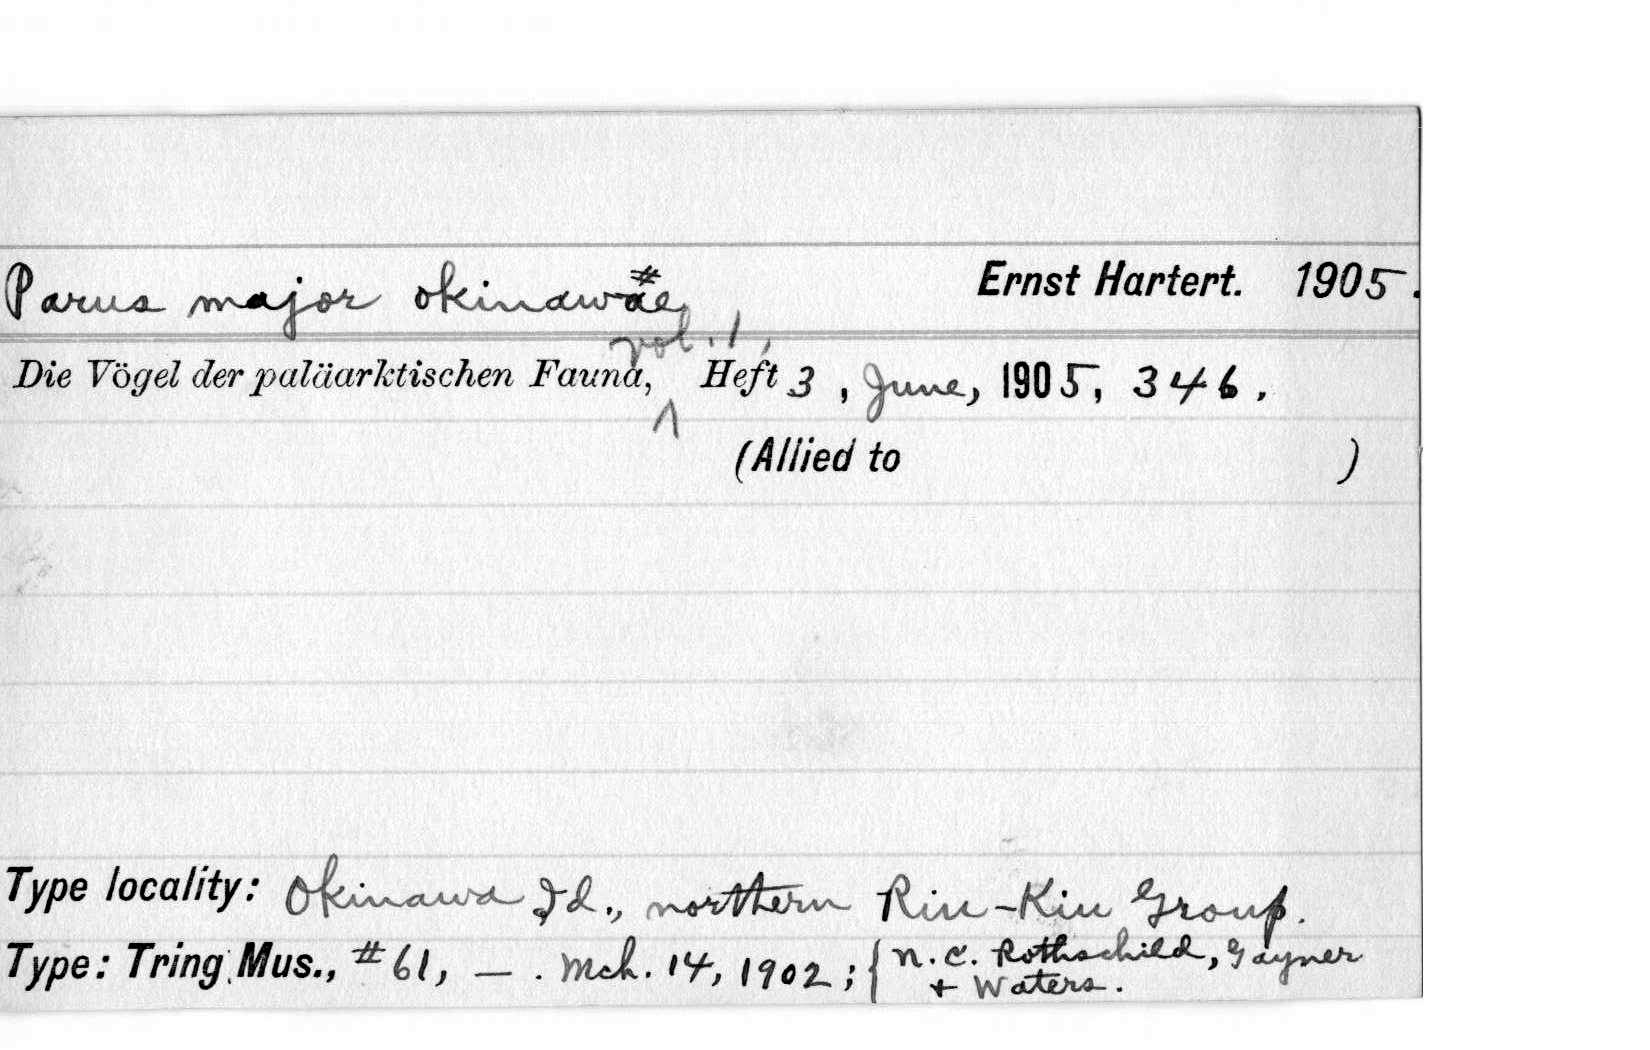 Parus major okinawae # Ernst Hartert. 1905.
vol. 1,
Die Vögel der paläarktischen Fauna, ^ Heft 3, June, 1905, 346.
(Allied to )
Type locality: Okinawa Id., northern Riu-Kiu Group.
Type: Tring Mus., #61, — . Mch. 14, 1902; { N. C. Rothschild, Gayner
+ Waters.